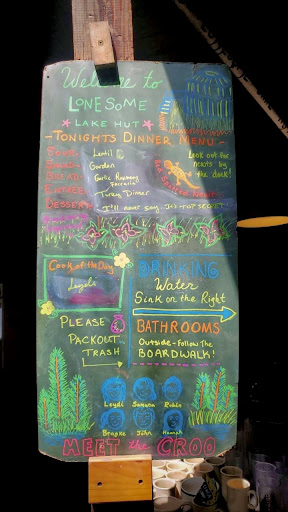 Welcome to
LONESOME
LAKE HUT
-TONIGHTS DINNER MENU-
SOUP Lentil
SALAD Garden
BREAD Garlic Rosemary Focaccia
ENTREE Turkey Dinner
DESSERT I'll never say. It's TOP SECRET!
Look out for
newts by
the dock!
Red Spotted Newt
Cook of the Day
Loyals
DRINKING
Water
Sink on the Right
PLEASE
PACKOUT
TRASH
BATHROOMS
Outside-Follow The
BOARDWALK!
John
MEET the CROO